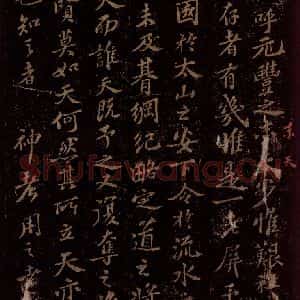 呼元豐之末天步惟艱
末天
存者有幾惟是一老屏
國於太山之安下令於流水
未及朞綱紀略定道之將
天而誰天既予之又復奪之
賢莫如天何然其所立天亦
知之者 神考用之者
Shufawang.CN